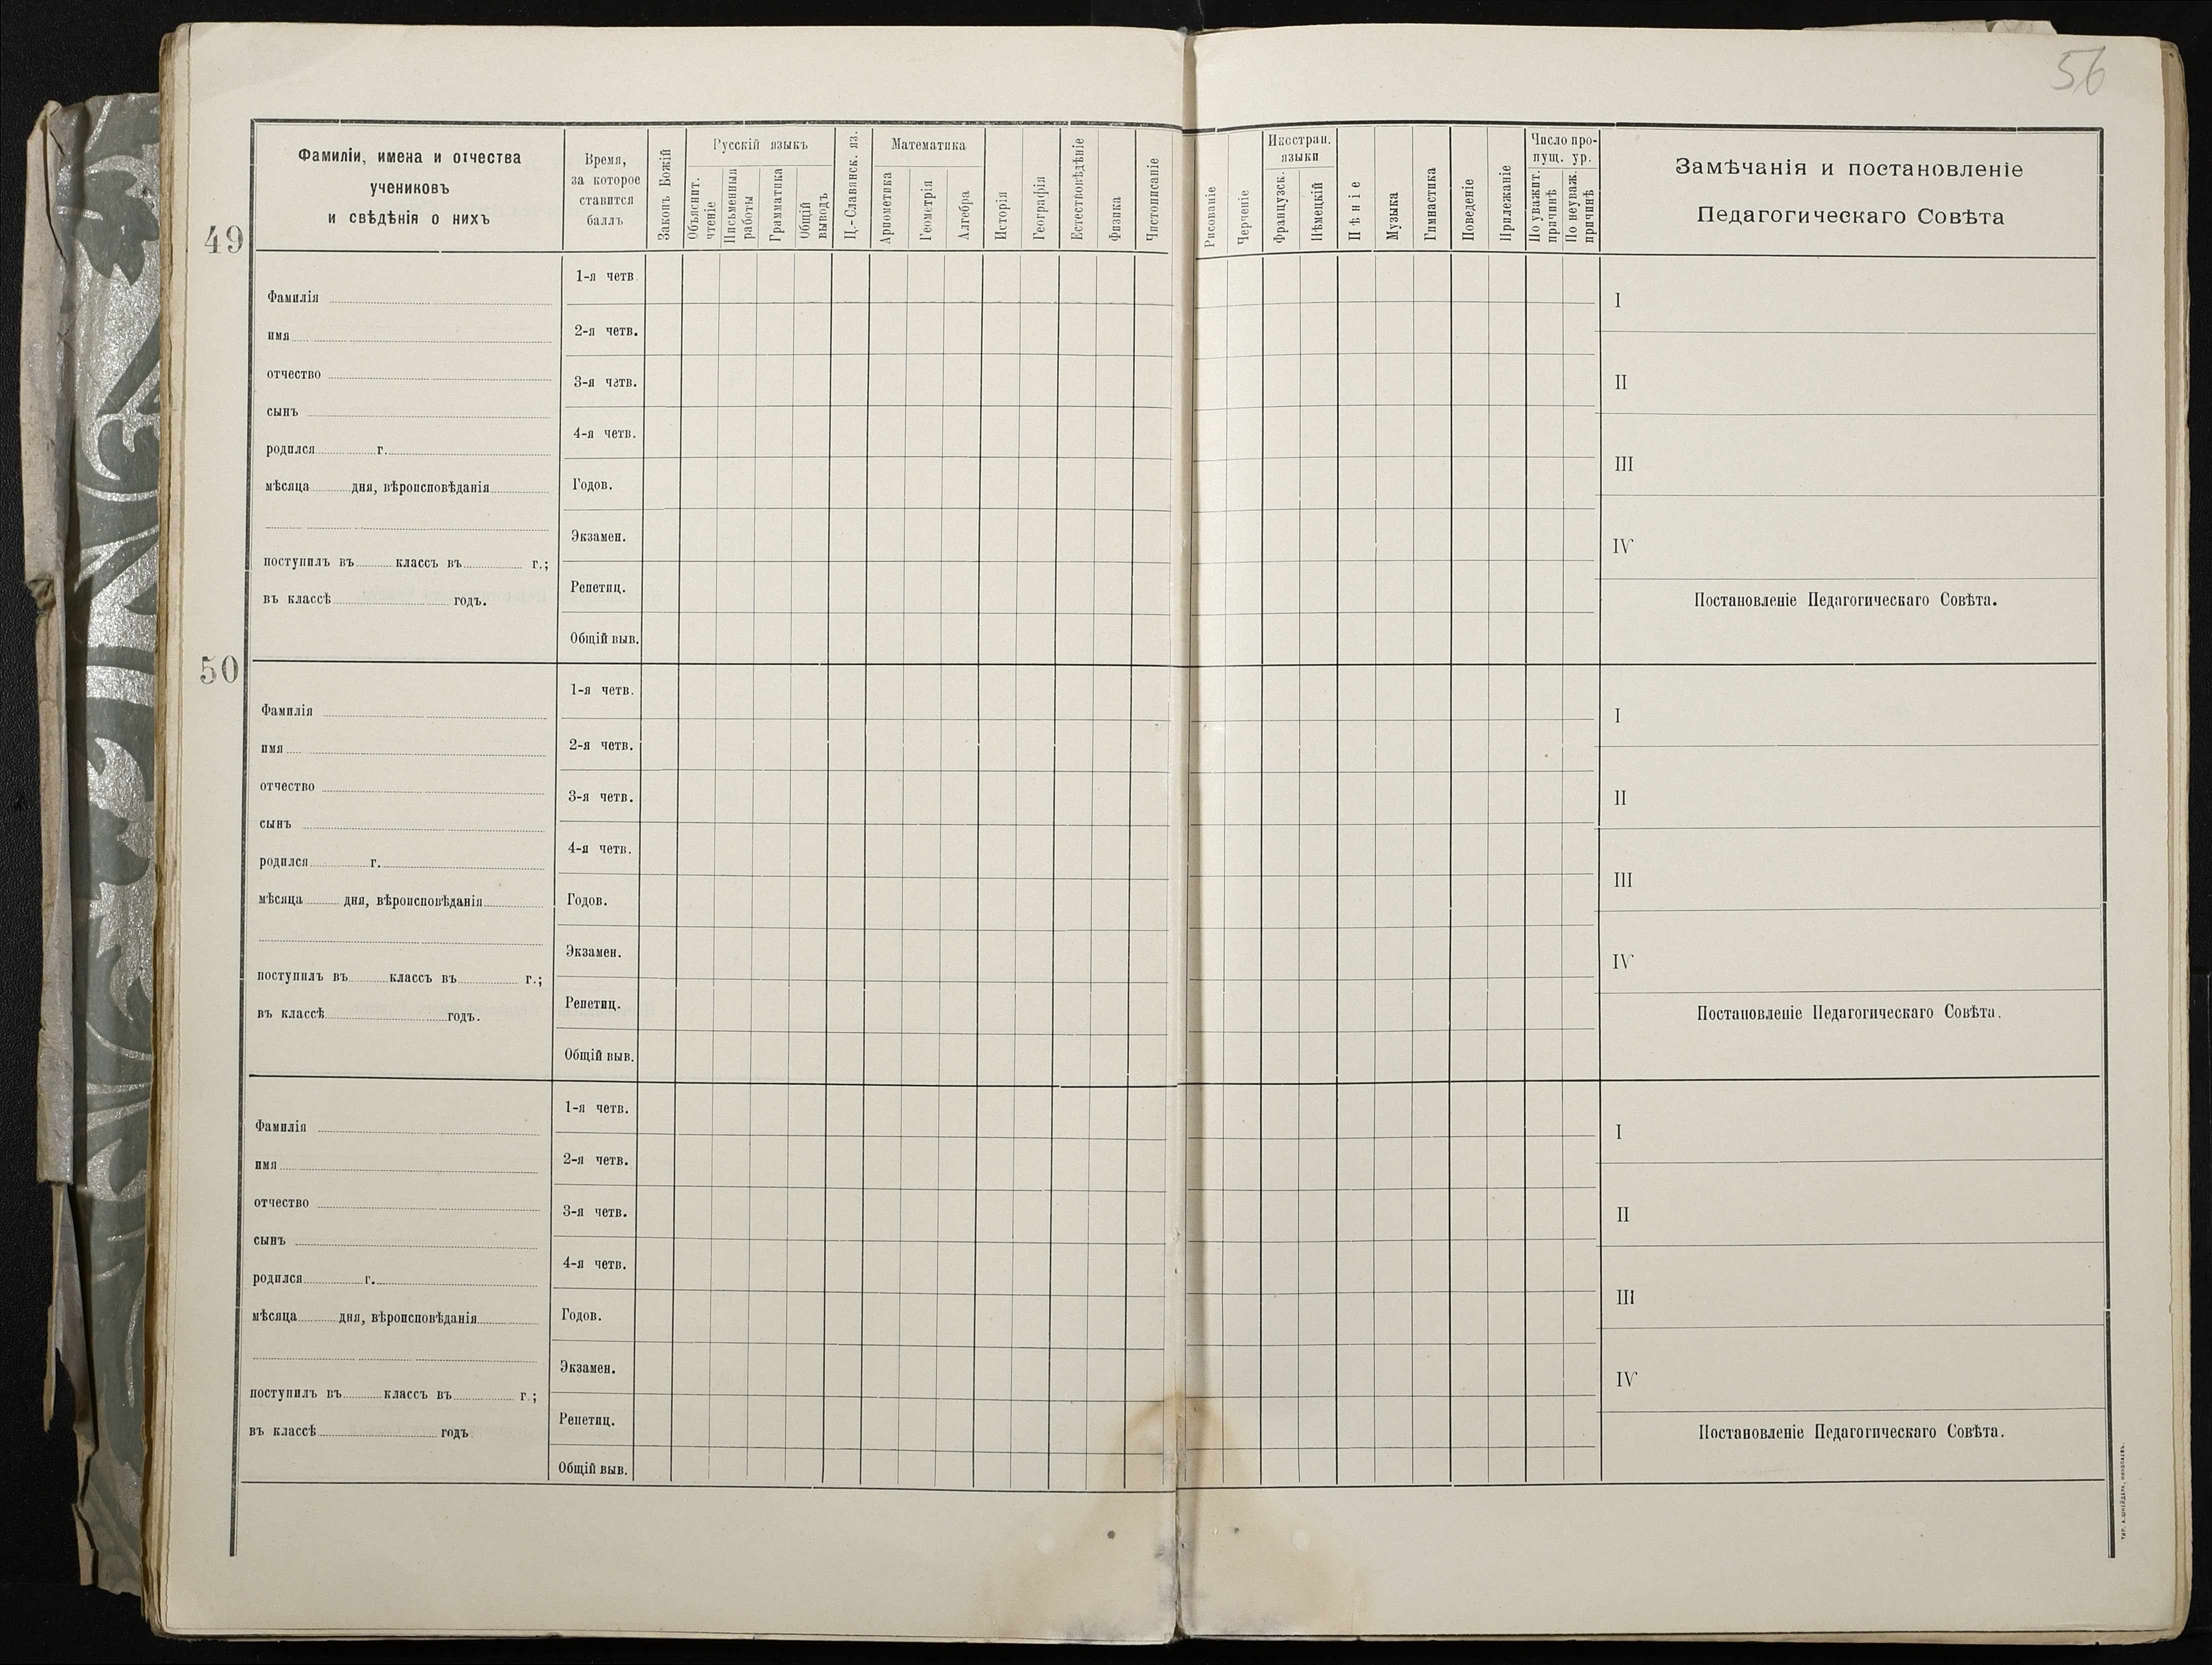 56
Фамиліи, имена и отчества
учениковъ
и свѣдѣнія о нихъ
Время,
за которое
ставится
баллъ
Законъ Божій
Русскій языкъ
Объяснит.
чтеніе
Письменныя
работы
Грамматика
Общій
выводъ
Ц.-Славянск. яз.
Математика
Ариѳметика
Геометрія
Алгебра
Исторія
Географія
Естествовѣдѣніе
Физика
Чистописаніе
Рисованіе
Черченіе
Иностран.
языки
Французск.
Нѣмецкій
Пѣніе
Музыка
Гимнастика
Поведеніе
Прилежаніе
Число про-
пущ. ур.
По уважит.
причинѣ
По неуваж.
причинѣ
Замѣчанія и постановленіе
Педагогическаго Совѣта
49
Фамилія
имя
отчество
сынъ
родился г.
мѣсяца дня, вѣроисповѣданія
поступилъ въ классъ въ г.;
въ классѣ годъ.
1-я четв
2-я четв.
3-я четв.
4-я четв.
Годов.
Экзамен.
Репетиц.
Общій выв.
I
II
III
IV
Постановленіе Педагогическаго Совѣта.
50
Фамилія
имя
отчество
сынъ
родился г.
мѣсяца дня, вѣроисповѣданія
поступилъ въ классъ въ г.;
въ классѣ годъ.
1-я четв.
2-я четв.
3-я четв.
4-я четв.
Годов.
Экзамен.
Репетиц.
Общій выв.
I
II
III
IV
Постановленіе Педагогическаго Совѣта.
Фамилія
имя
отчество
сынъ
родился г.
мѣсяца дня, вѣроисповѣданія
поступилъ въ классъ въ г.;
въ классѣ годъ
1-я четв.
2-я четв.
3-я четв.
4-я четв.
Годов.
Экзамен.
Репетиц.
Общій выв.
I
II
III
IV
Постановленіе Педагогическаго Совѣта.
Тип. А. Шнейдеръ, Николаевъ.